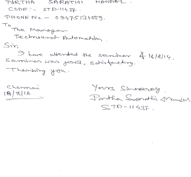 PARTHA SARATHI MANDAL
CODE:- STD-11537.
PHONE No -
To
The Manager
Technocrat Automation.
Sir,
I have attended the seminar of 18/8/16.
Seminar was good, satisfactory.
Thanking you.
Chennai
18/8/16
Yours Sincerely
Partha Sarathi Mandal
STD-11537.